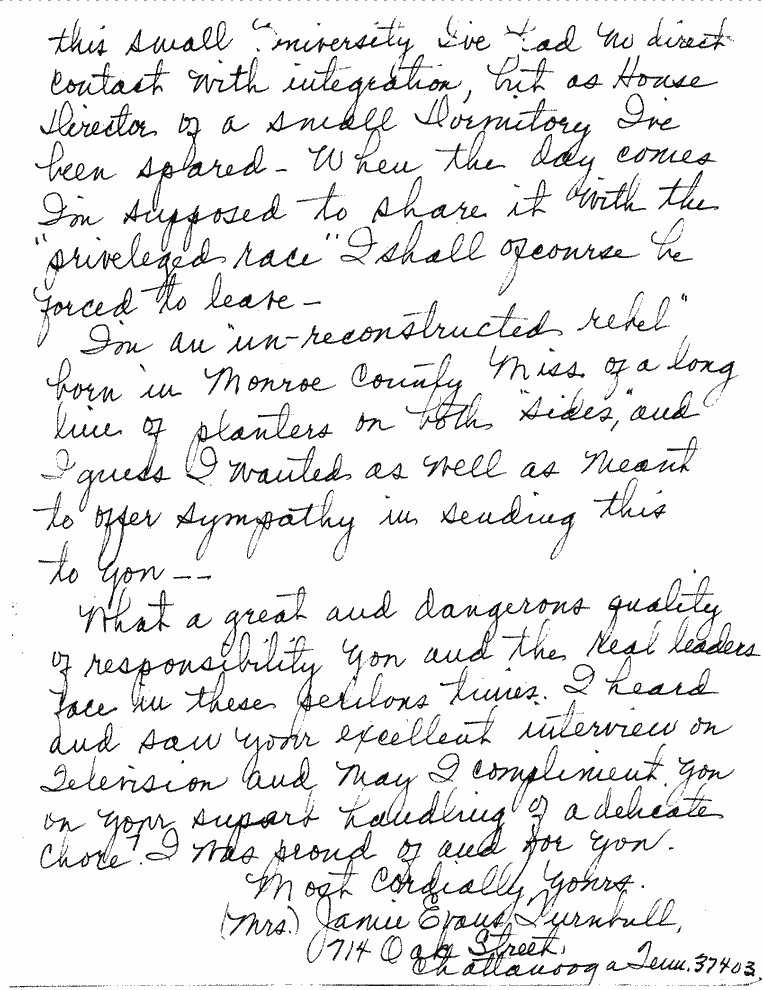 this small University I've had no direct
contact with integration, but as House
Director of a small Dormitory I've
been spared - When the day comes
I'm supposed to share it with the
"priveleged race" I shall ofcourse be
forced to leave -
I'm an "un-reconstructed rebel"
born in Monroe County Miss. of a long
line of planters on both "sides," and
I guess I wanted as well as meant
to offer sympathy in sending this
to you --
What a great and dangerous quality
of responsibility you and the real leaders
face in these perilous times. I heard
and saw your excellent interview on
Television and may I compliment you
on your suparb handling of a delicate
chore! I was proud of and for you.
Most Cordially yours.
(Mrs.) Jamie Evans Turnbull,
714 Oak Street,
Chattanooga Tenn. 37403.